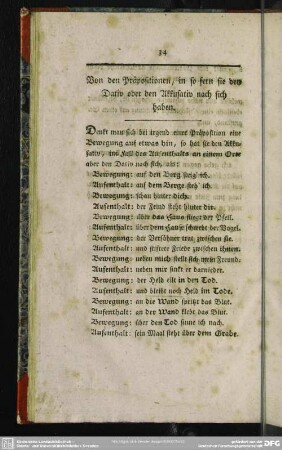 34
Von den Präpositionen, in so fern sie den
Dativ oder den Akkusativ nach sich
haben.
Denkt man sich bei irgend einer Präposition eine
Bewegung auf etwas hin, so hat sie den Akku-
sativ, im Fall des Aufenthalts an einem Orte
aber den Dativ nach sich, als:
Bewegung: auf den Berg steig' ich.
Aufenthalt: auf dem Berge steh' ich.
Bewegung: schau hinter dich.
Aufenthalt: der Feind steht hinter dir.
Bewegung: über das Haus stieg der Pfeil.
Aufenthalt: über dem Hause schwebt der Vogel.
Bewegung: der Versöhner trat zwischen sie.
Aufenthalt: und stiftete Friede zwischen ihnen.
Bewegung: neben mich stellt sich mein Freund.
Aufenthalt: neben mir sinkt er darnieder.
Bewegung: der Held eilt in den Tod.
Aufenthalt: und bleibt noch Held im Tode.
Bewegung: an die Wand spritzt das Blut.
Aufenthalt: an der Wand klebt das Blut.
Bewegung: über den Tod sinne ich nach.
Aufenthalt: sein Maal steht über dem Grabe.